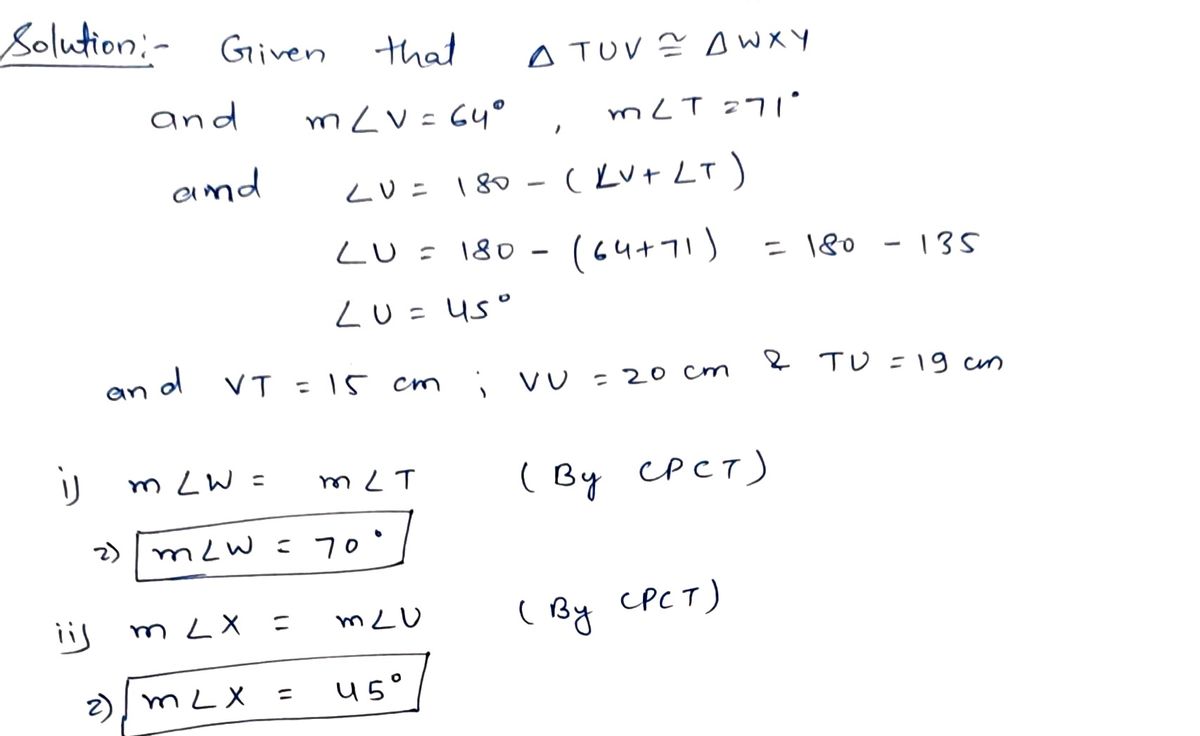 Solution:- Given that △ TUV ≅ △ WXY
and m∠V = 64° , m∠T = 71°
and ∠U = 180 - (∠V + ∠T)
∠U = 180 - (64+71) = 180 - 135
∠U = 45°
and VT = 15 cm ; VU = 20 cm & TU = 19 cm
i) m∠W = m∠T (By CPCT)
⇒ m∠W = 70°
ii) m∠X = m∠U (By CPCT)
⇒ m∠X = 45°